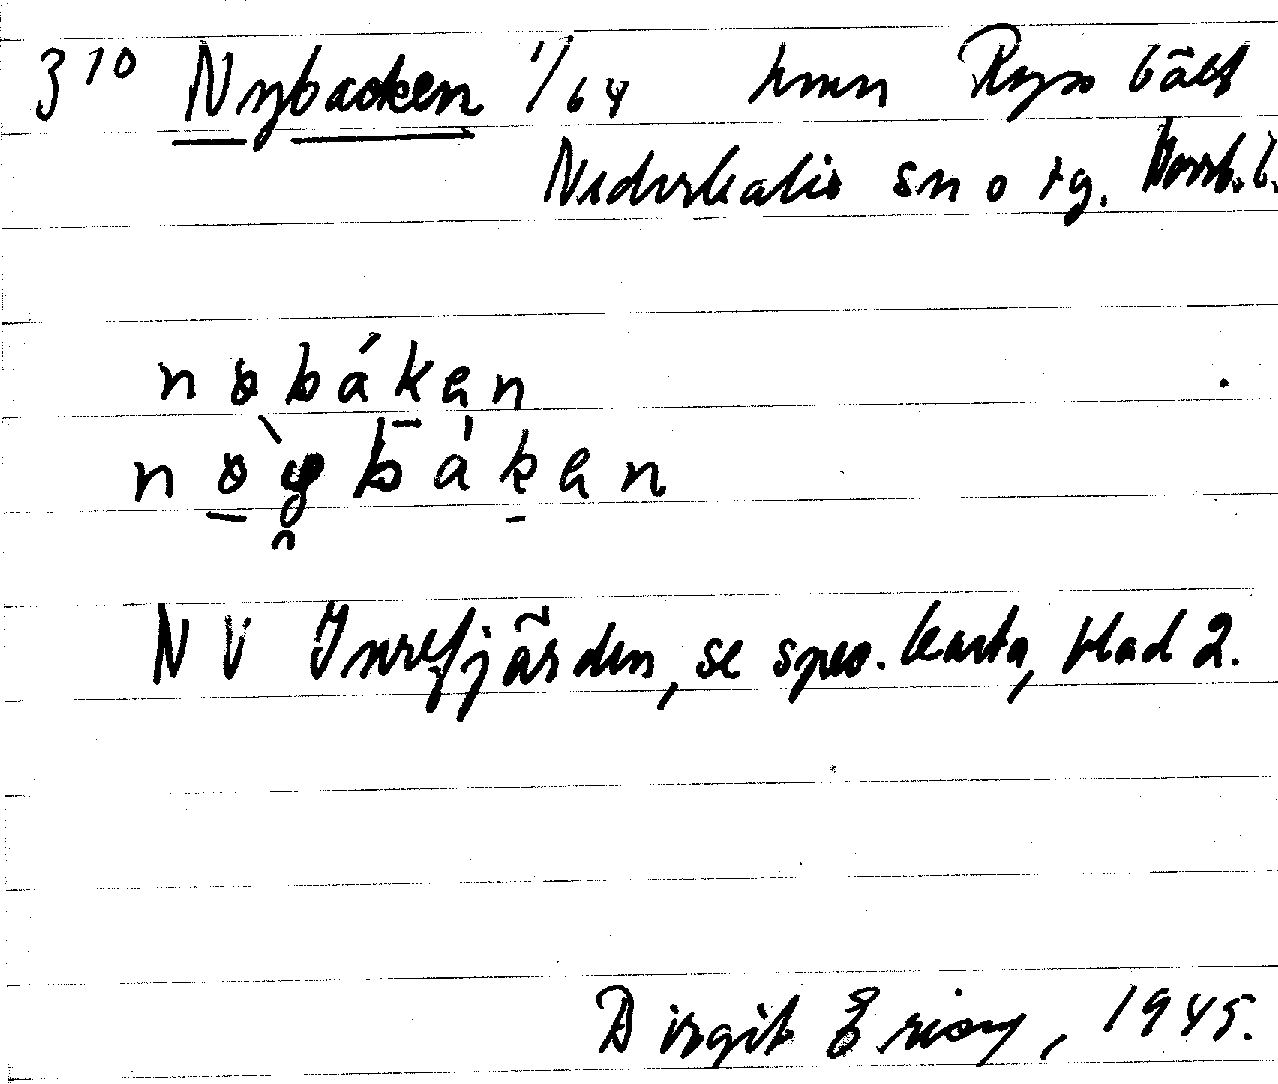 310 Nybacken 1/64 hmn Rysobält
Nederkalix sn o tg. Norrb. l.
nøbákan
nøybákan
NV Inrefjärden, se spec. karta, blad 2.
Birgit , 1945.